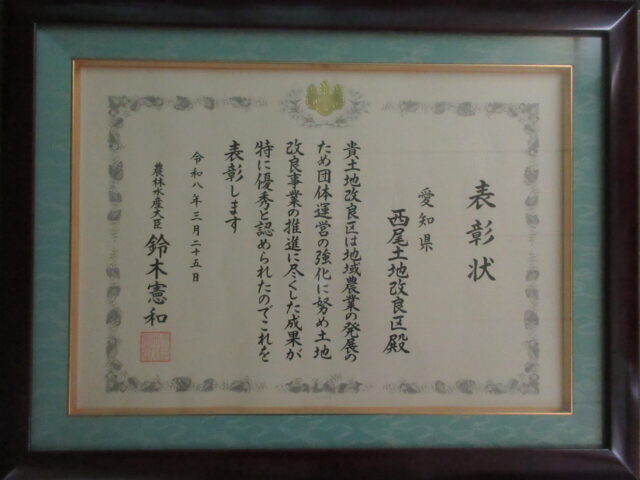 表彰状
愛知県
西尾土地改良区殿
貴土地改良区は地域農業の発展の
ため団体運営の強化に努め土地
改良事業の推進に尽くした成果が
特に優秀と認められたのでこれを
表彰します
令和八年三月二十五日
農林水産大臣 鈴木憲和